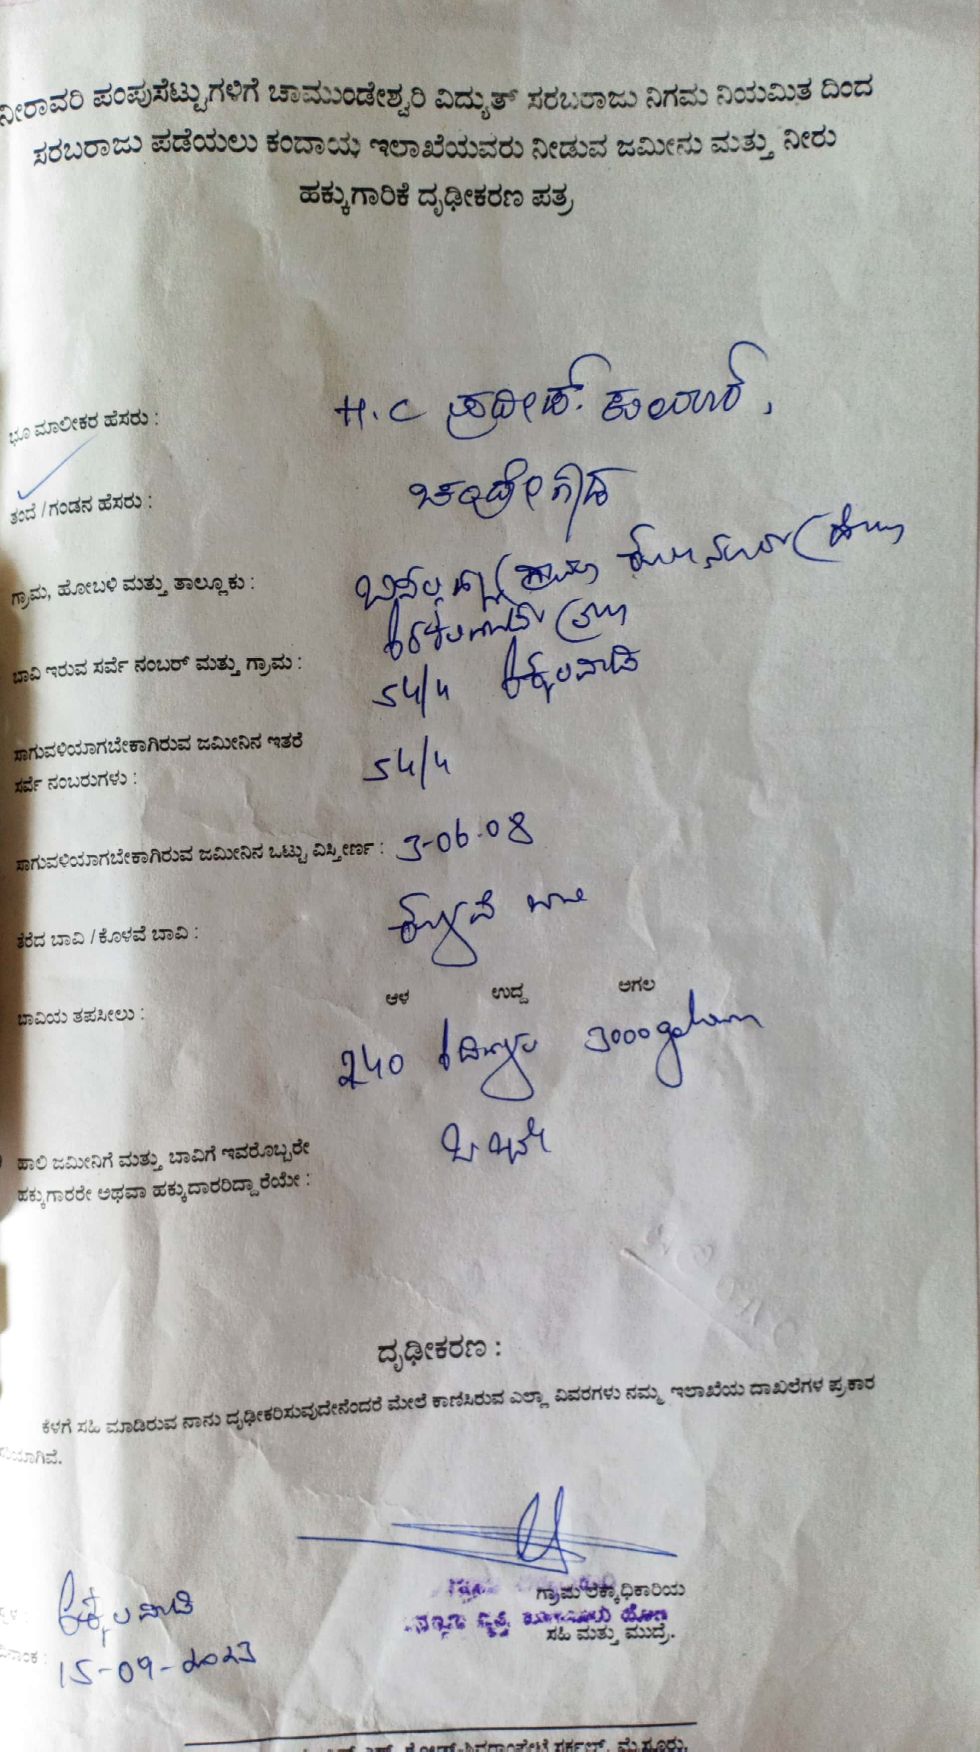 ನೀರಾವರಿ ಪಂಪುಸೆಟ್ಟುಗಳಿಗೆ ಚಾಮುಂಡೇಶ್ವರಿ ವಿದ್ಯುತ್ ಸರಬರಾಜು ನಿಗಮ ನಿಯಮಿತ ದಿಂದ
ಸರಬರಾಜು ಪಡೆಯಲು ಕಂದಾಯ ಇಲಾಖೆಯವರು ನೀಡುವ ಜಮೀನು ಮತ್ತು ನೀರು
ಹಕ್ಕುಗಾರಿಕೆ ದೃಢೀಕರಣ ಪತ್ರ
ಭೂ ಮಾಲೀಕರ ಹೆಸರು : H.C ಪ್ರದೀಪ್. ಕುಮಾರ್,
ತಂದೆ / ಗಂಡನ ಹೆಸರು : ಚಂದ್ರೇಗೌಡ
ಗ್ರಾಮ, ಹೋಬಳಿ ಮತ್ತು ತಾಲ್ಲೂಕು :
ಬಾವಿ ಇರುವ ಸರ್ವೆ ನಂಬರ್ ಮತ್ತು ಗ್ರಾಮ : 54/4
ಸಾಗುವಳಿಯಾಗಬೇಕಾಗಿರುವ ಜಮೀನಿನ ಇತರೆ
ಸರ್ವೆ ನಂಬರುಗಳು : 54/4
ಸಾಗುವಳಿಯಾಗಬೇಕಾಗಿರುವ ಜಮೀನಿನ ಒಟ್ಟು ವಿಸ್ತೀರ್ಣ : 3-06-08
ತೆರೆದ ಬಾವಿ / ಕೊಳವೆ ಬಾವಿ : ಕೊಳವೆ ಬಾವಿ
ಆಳ ಉದ್ದ ಅಗಲ
ಬಾವಿಯ ತಪಸೀಲು :
240 3000
ಹಾಲಿ ಜಮೀನಿಗೆ ಮತ್ತು ಬಾವಿಗೆ ಇವರೊಬ್ಬರೇ
ಹಕ್ಕುಗಾರರೇ ಅಥವಾ ಹಕ್ಕುದಾರರಿದ್ದಾರೆಯೇ :
ದೃಢೀಕರಣ :
ಕೆಳಗೆ ಸಹಿ ಮಾಡಿರುವ ನಾನು ದೃಢೀಕರಿಸುವುದೇನೆಂದರೆ ಮೇಲೆ ಕಾಣಿಸಿರುವ ಎಲ್ಲಾ ವಿವರಗಳು ನಮ್ಮ ಇಲಾಖೆಯ ದಾಖಲೆಗಳ ಪ್ರಕಾರ
ಗ್ರಾಮ ಲೆಕ್ಕಾಧಿಕಾರಿಯ
ಸಹಿ ಮತ್ತು ಮುದ್ರೆ.
15-09-2023